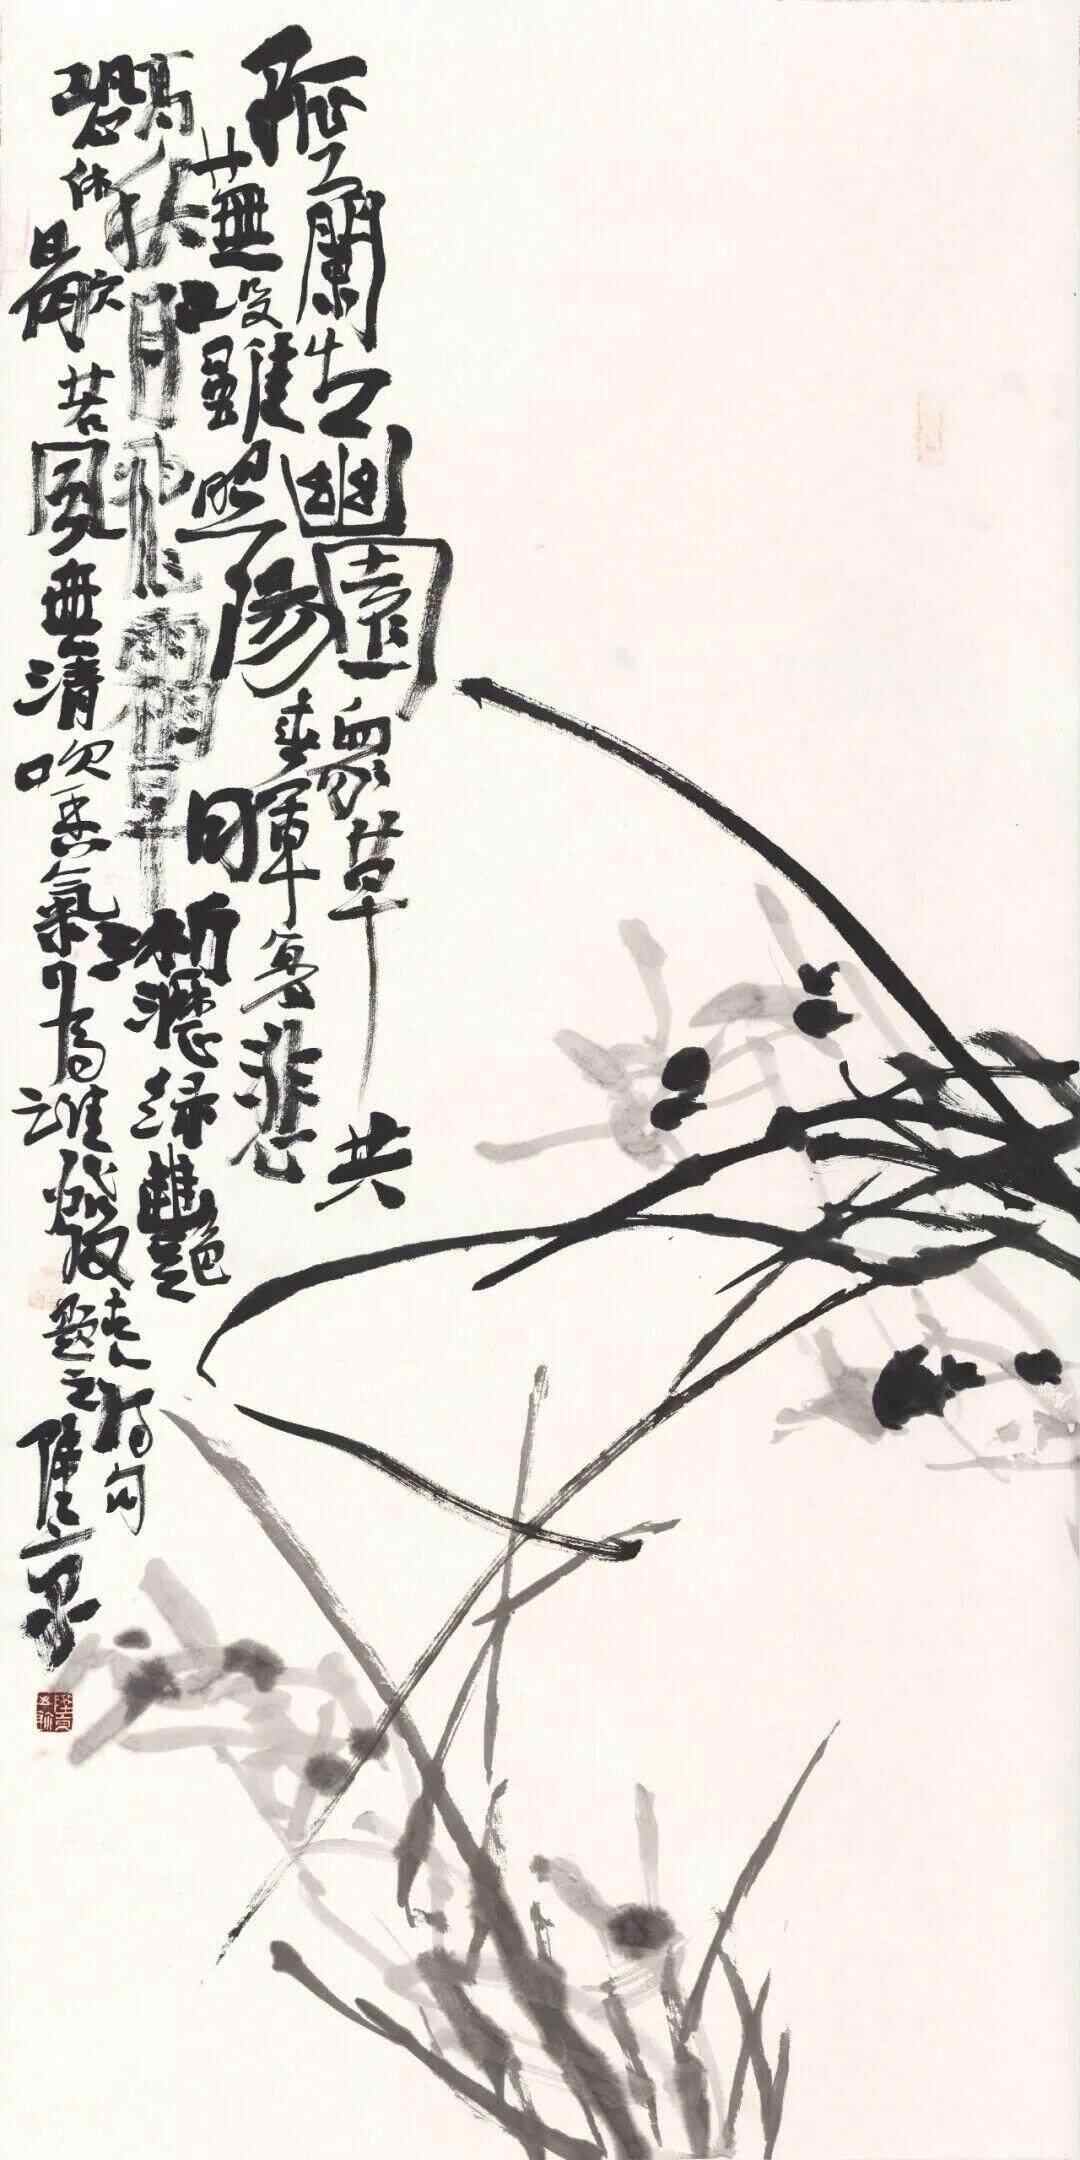 孤蘭生幽園眾草共
蕪沒雖照陽春暉復悲
高秋月飛霜早淅瀝綠艷
恐休歇若風無清吹香氣為誰發
句
題之